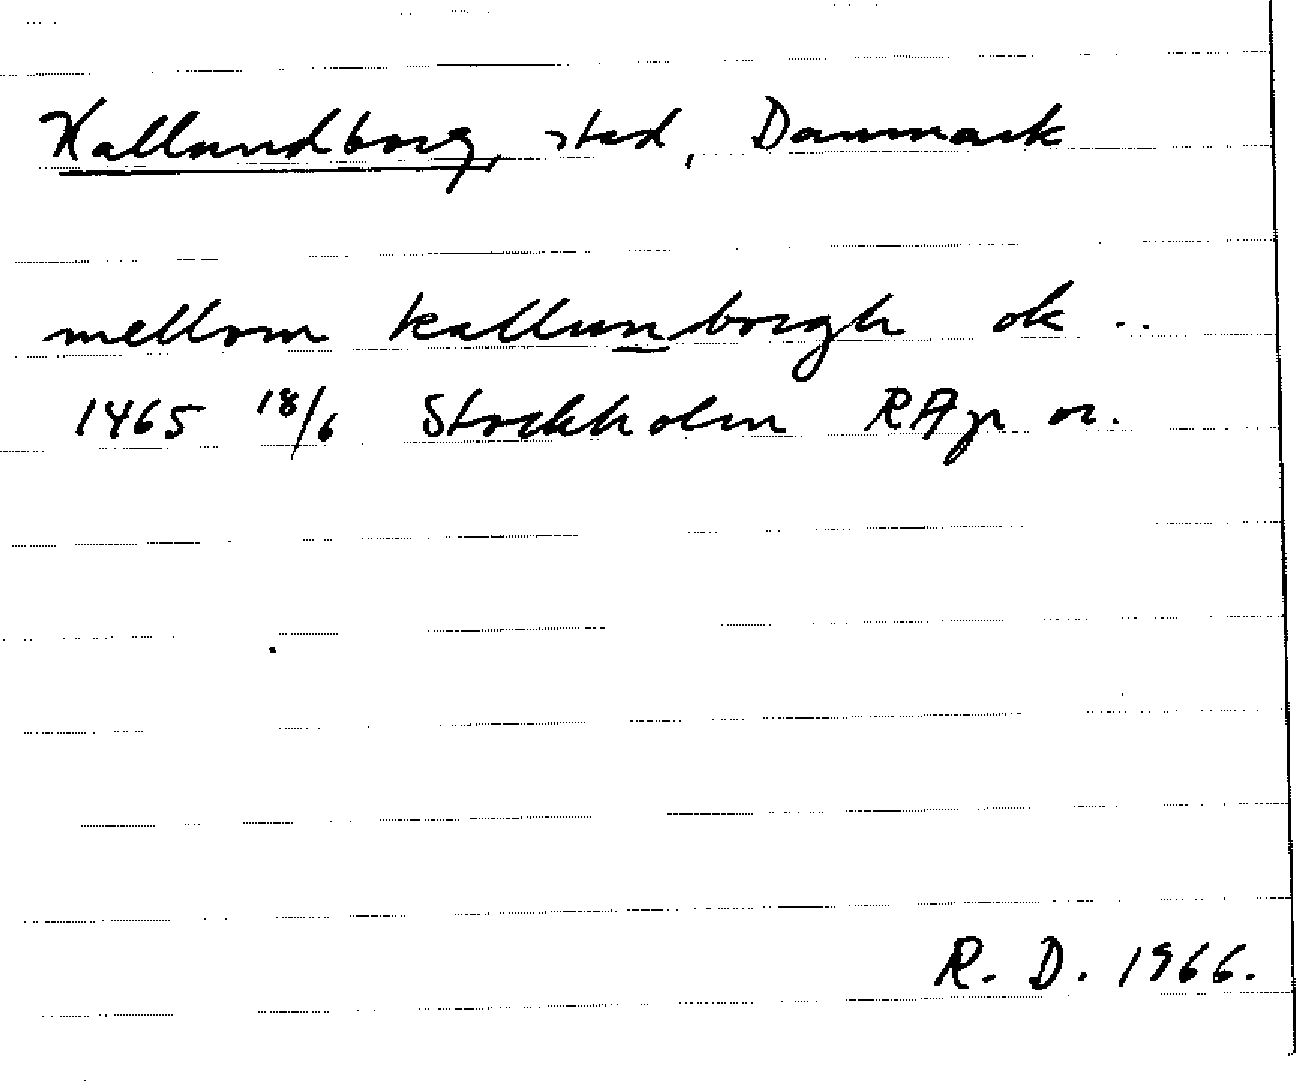 Kallundborg, stad, Danmark
mellom kallunborgh ok ..
1465 18/6 Stockholm RAp or.
R. D. 1966.